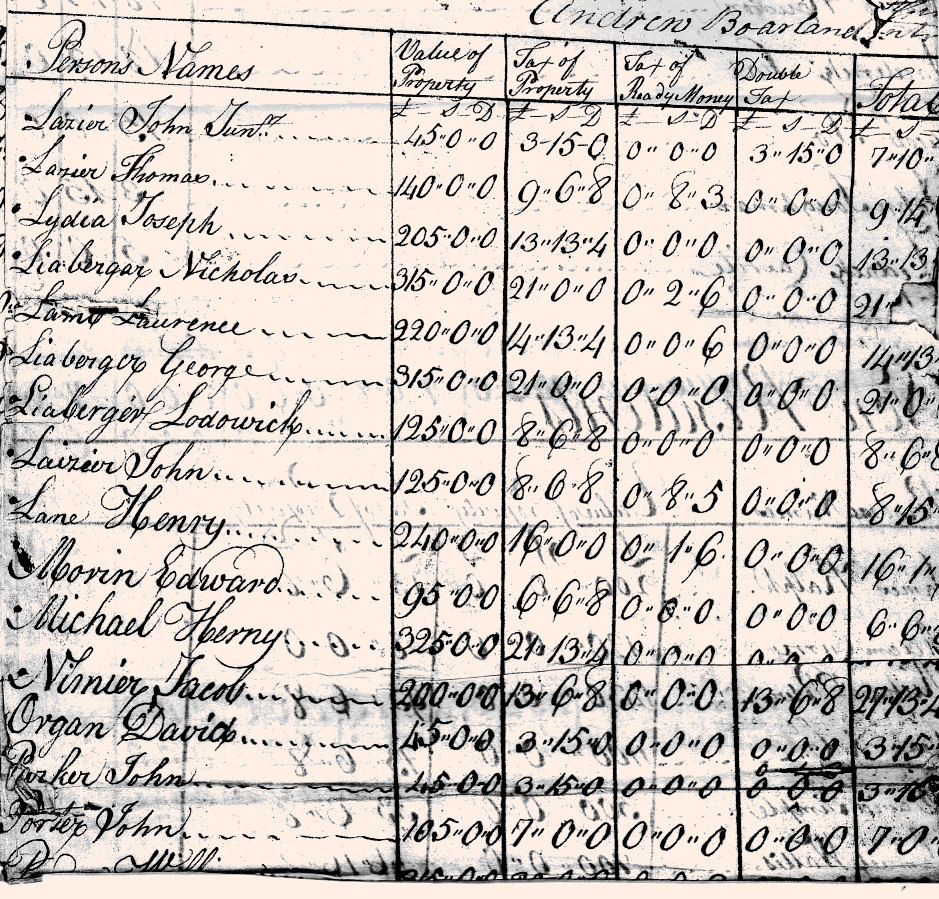 Andrew Boarland
Persons Names Value of Property Tax of Property Tax of Ready Money Double Tax Total
£ S D £ S D £ S D £ S D £ S
Lazier John Junr. 45"0"0 3-15-0 0"0"0 3"15"0 7"10"
Lazier Thomas 140"0"0 9"6"8 0"8"3 0"0"0 9"14
Lydia Joseph 205"0"0 13"13"4 0"0"0 0"0"0 13"13
Liabergar Nicholas 315"0"0 21"0"0 0"2"6 0"0"0 21"
Lame Laurence 220"0"0 14"13"4 0"0"6 0"0"0 14"13
Liaberger George 315"0"0 21"0"0 0"0"0 0"0"0 21"0"
Liaberger Lodowick 125"0"0 8"6"8 0"0"0 0"0"0 8"6"8
Laizier John 125"0"0 8"6"8 0"8"5 0"0"0 8"15
Lane Henry 240"0"0 16"0"0 0"1"6 0"0"0 16"1"
Morin Edward 95"0"0 6"6"8 0"0"0 0"0"0 6"6"
Michael Herny 325"0"0 21"13"4 0"0"0 0"0"0
Nimier Jacob 200"0"0 13"6"8 0"0"0 13"6"8 27"13"4
Organ David 45"0"0 3"15"0 0"0"0 0"0"0 3"15"
Parker John 45"0"0 3"15"0 0"0"0 0"0"0 3"15
Porter John 105"0"0 7"0"0 0"0"0 0"0"0 7"0